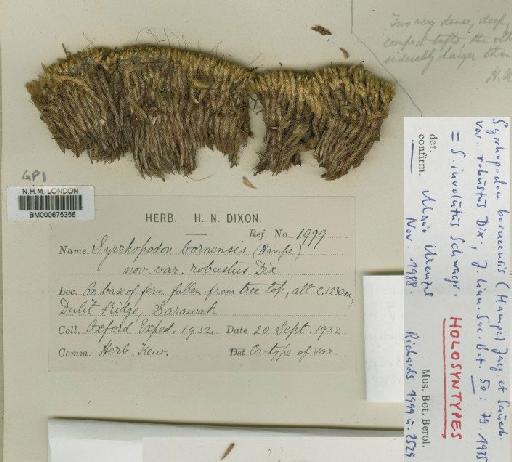 Two very dense, deep,
compact tufts, the oth
siderably larger than
GP1
N.H.M. LONDON
BM000675366
HERB. H. N. DIXON.
Ref No. 1999
Name. Syrrhopodon borneensis (Hampe)
nov. var. robustus Dix
Loc. On base of fern fallen from tree top, alt c.1230m,
Dulit Ridge, Sarawak
Coll. Oxford Exped. 1932. Date 20 Sept. 1932.
Comm. Herb. Kew. Det. Co-type of var.
Syrrhopodon borneensis (Hampe) Jaeg et Sauerb.
var. robustus Dix., J. Linn. Soc. Bot. 50: 79 1935
= S. involutus Schwaegr. HOLOSYNTYPES
det.
confirm.
Nov. 1988
Mus. Bot. Berol.
Richards 1999 &